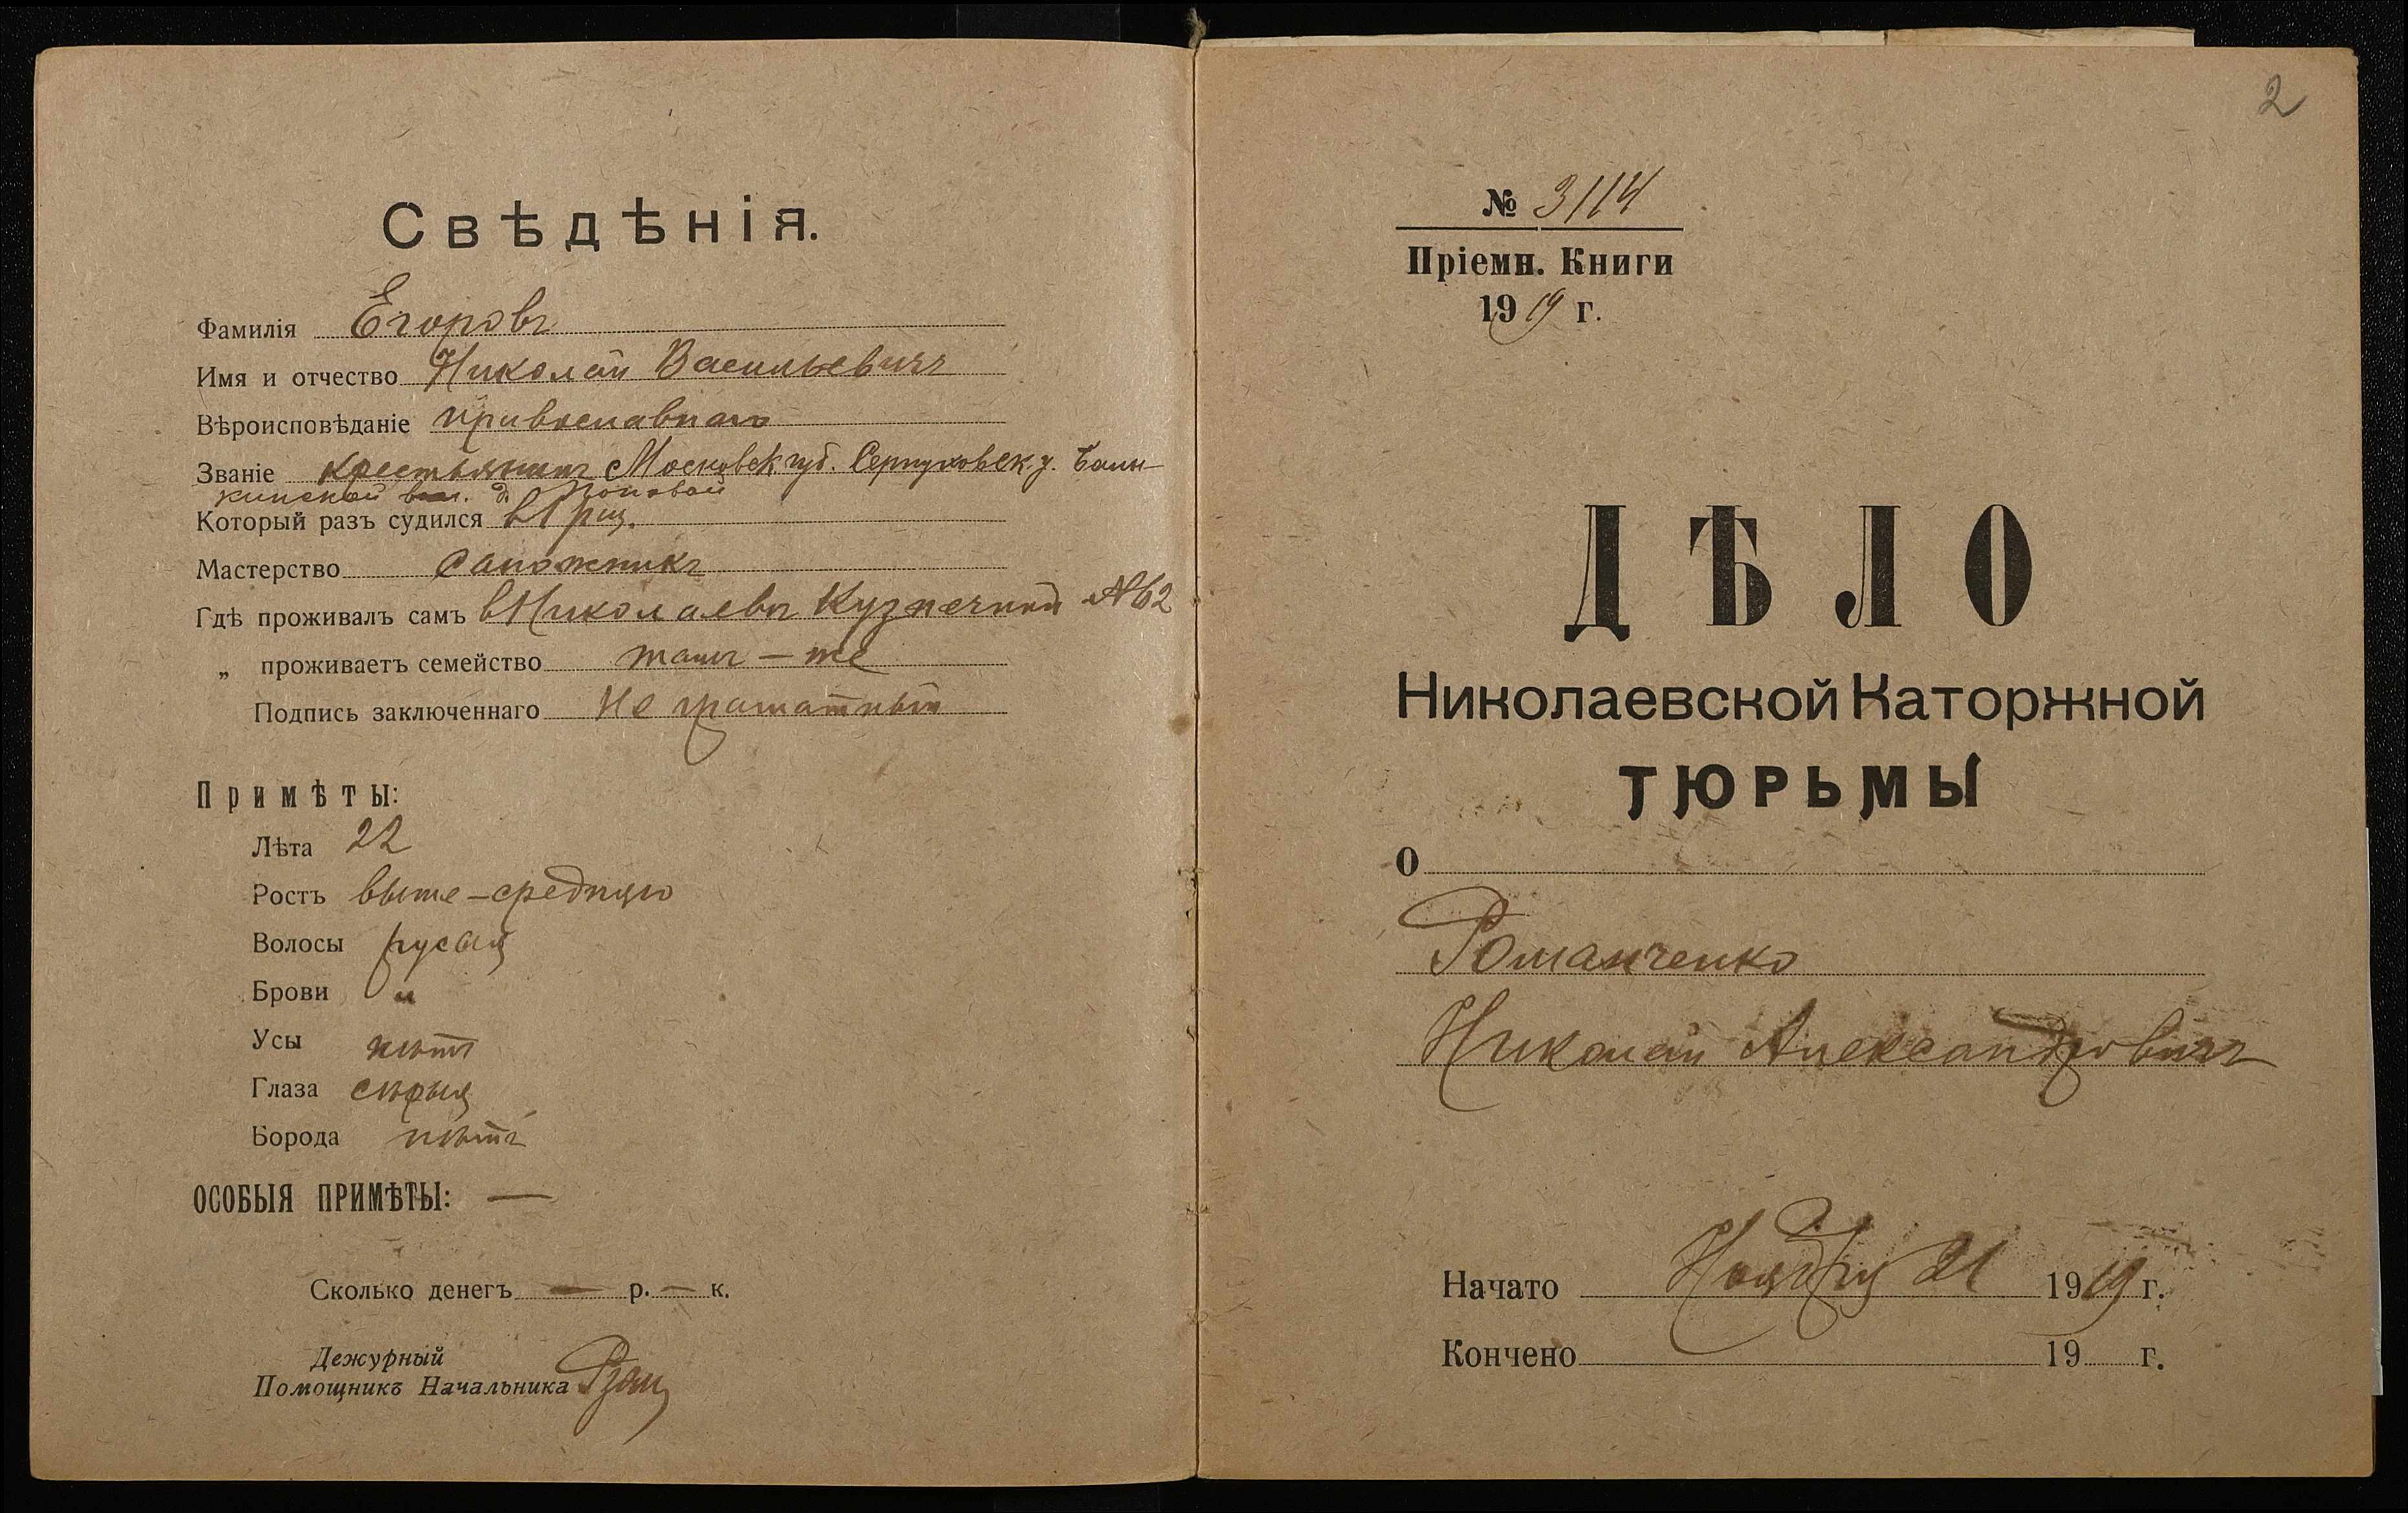 Свѣдѣнія.
Фамилія Егоровъ
Имя и отчество Николай Васильевичъ
Вѣроисповѣданіе православнаго
Званіе крестьянинъ Московск. губ. Серпуховск. у.
д. Поповой
Который разъ судился в 1 раз.
Мастерство сапожникъ
Гдѣ проживалъ самъ в Николаевѣ Кузнечной №62
„ проживаетъ семейство тамъ — же
Подпись заключеннаго Не граматный
Примѣты:
Лѣта 22
Ростъ выше — средняго
Волосы русыя
Брови "
Усы нѣтъ
Глаза сѣрыя
Борода нѣтъ
ОСОБЫЯ ПРИМѢТЫ: —
Сколько денегъ — р. — к.
Дежурный
Помощникъ Начальника
2
№ 3114
Пріемн. Книги
1919 г.
ДѢЛО
Николаевской Каторжной
ТЮРЬМЫ
О
Романченко
Николай Александровичъ
Начато Ноября 21 1919 г.
Кончено 19 г.